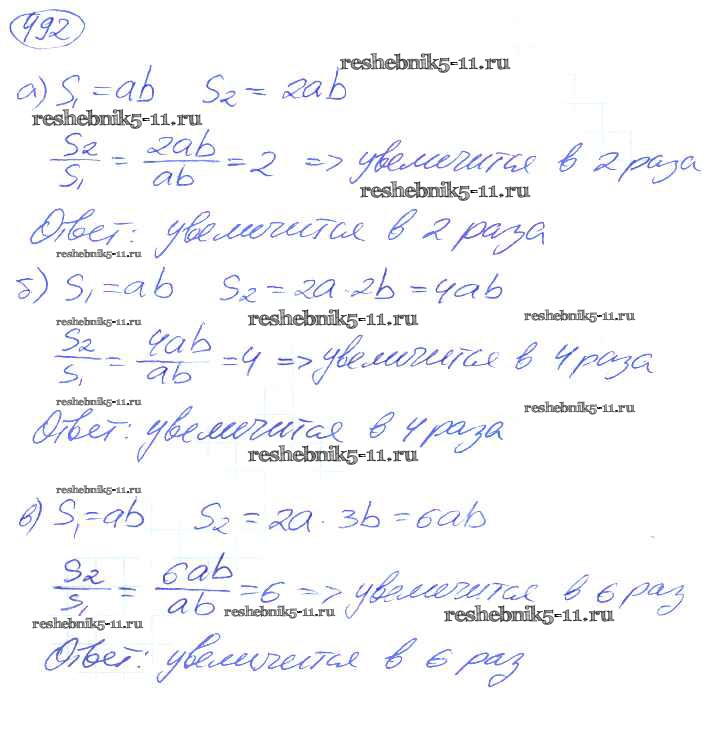 492
reshebnik5-11.ru
а) S₁ = ab S₂ = 2ab
reshebnik5-11.ru
S₂/S₁ = 2ab/ab = 2 => увеличится в 2 раза
reshebnik5-11.ru
Ответ: увеличится в 2 раза
reshebnik5-11.ru
б) S₁ = ab S₂ = 2a · 2b = 4ab
reshebnik5-11.ru reshebnik5-11.ru reshebnik5-11.ru
S₂/S₁ = 4ab/ab = 4 => увеличится в 4 раза
reshebnik5-11.ru reshebnik5-11.ru
Ответ: увеличится в 4 раза
reshebnik5-11.ru
reshebnik5-11.ru
в) S₁ = ab S₂ = 2a · 3b = 6ab
S₂/S₁ = 6ab/ab = 6 => увеличится в 6 раз
reshebnik5-11.ru reshebnik5-11.ru reshebnik5-11.ru
Ответ: увеличится в 6 раз